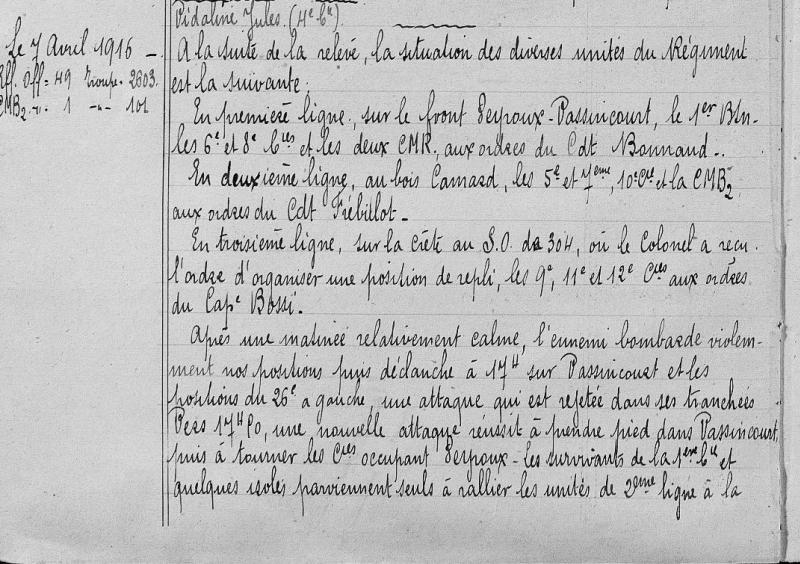 Pidaline Jules (4e Cie)
Le 7 Avril 1916 -
Eff. Off = 49 Troupe - 2603.
CMB2 -"- 1 -"- 101
A la suite de la relève, la situation des diverses unités du Régiment
est la suivante:
En première ligne, sur le front Peyroux-Vassincourt, le 1er Btn.
les 6e et 8e Cies et les deux CMR, aux ordres du Cdt Bonnand -.
En deuxième ligne, au bois Camard, les 5e et 7eme, 10e Cie et la CMB2
aux ordres du Cdt Frébillot -
En troisième ligne, sur la crête au S.O. de 304, où le Colonel a reçu
l'ordre d'organiser une position de repli, les 9e, 11e et 12e Cies aux ordres
du Cape Bossi.
Après une matinée relativement calme, l'ennemi bombarde violem-
ment nos positions puis déclanche à 17H sur Vassincourt et les
positions du 26e a gauche, une attaque qui est rejetée dans ses tranchées
Vers 17H50, une nouvelle attaque réussit à prendre pied dans Vassincourt,
puis à tourner les Cies occupant Peyroux - les survivants de la 1ere Cie et
quelques isolés parviennent seuls à rallier les unités de 2eme ligne à la